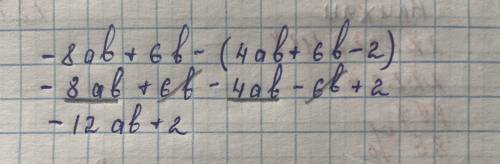 -8ab+6b-(4ab+6b-2)
-8ab+6b-4ab-6b+2
-12ab+2